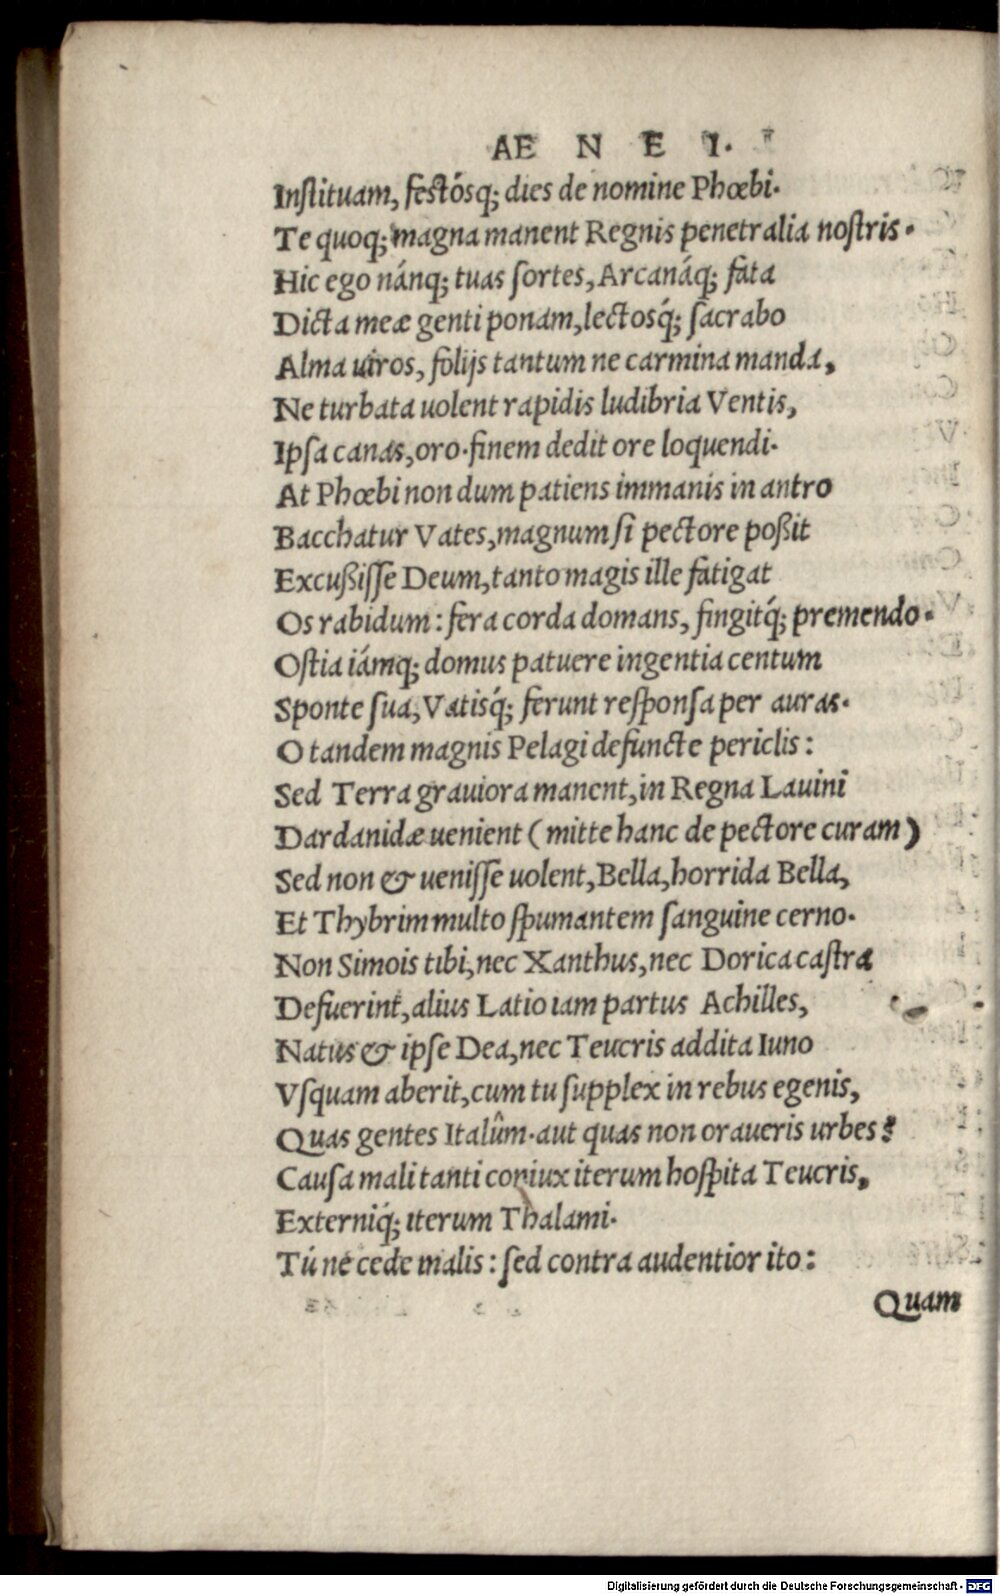 AE N E I.
Instituam, festósq; dies de nomine Phœbi.
Te quoq; magna manent Regnis penetralia nostris.
Hic ego nánq; tuas sortes, Arcanáq; fata
Dicta meæ genti ponam, lectosq́; sacrabo
Alma uiros, folijs tantum ne carmina manda,
Ne turbata uolent rapidis ludibria Ventis,
Ipsa canas, oro. finem dedit ore loquendi.
At Phœbi non dum patiens immanis in antro
Bacchatur Vates, magnum si pectore poßit
Excußisse Deum, tanto magis ille fatigat
Os rabidum: fera corda domans, fingitq́; premendo.
Ostia iámq; domus patuere ingentia centum
Sponte sua, Vatisq́; ferunt responsa per auras.
O tandem magnis Pelagi defuncte periclis:
Sed Terra grauiora manent, in Regna Lauini
Dardanidæ uenient (mitte hanc de pectore curam)
Sed non & uenisse uolent, Bella, horrida Bella,
Et Thybrim multo spumantem sanguine cerno.
Non Simois tibi, nec Xanthus, nec Dorica castra
Defuerint, alius Latio iam partus Achilles,
Natus & ipse Dea, nec Teucris addita Iuno
Vsquam aberit, cum tu supplex in rebus egenis,
Quas gentes Italûm. aut quas non oraueris urbes?
Causa mali tanti coniux iterum hospita Teucris,
Externiq́; iterum Thalami.
Tú ne cede malis: sed contra audentior ito:
Quam
Digitalisierung gefördert durch die Deutsche Forschungsgemeinschaft - DFG